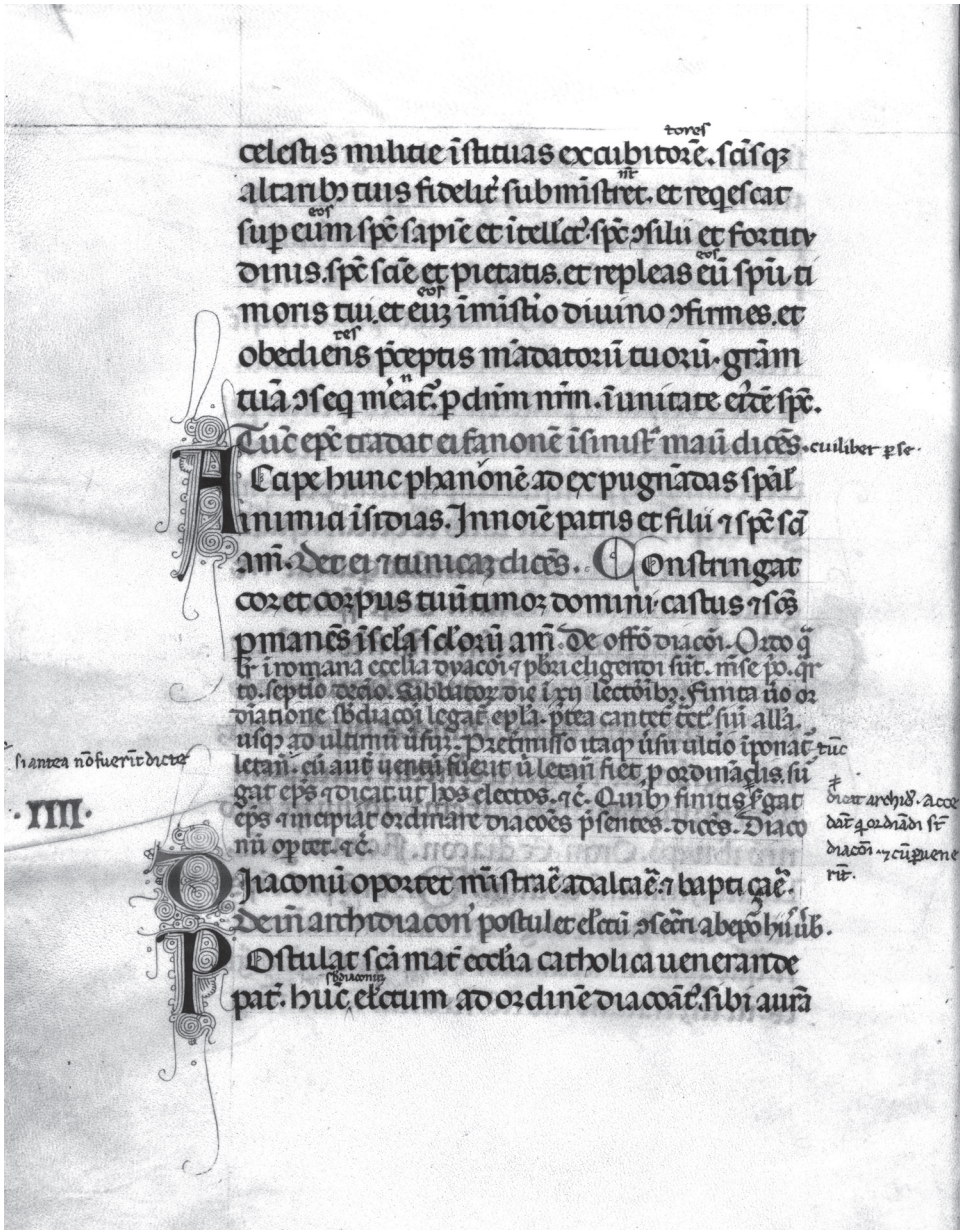 tores
celestis militie īstituas excubitorē. scīsqꝫ
nt
altaribꝫ tuis fidelit᷑ submīstret. et reqescat
eos
sup eum spc̄ sapiē et ītell'ct᷑. spc̄ ɔsilii et fortitu
eos
dinis. spc̄ sciē et pietatis. et repleas eū spū ti
eos
moris tui. et euꝫ īmist'io diuino ɔfirmes. et
tes
obediens p̄ceptis mādatorū tuorū. grām
tuā ɔseq m'eat᷑. p dnm nrm. ī unitate ei'dē spc̄.
Tūc ep̄c tradat ei fanonē ī sinist᷑ manū dicēs. cuilibet ꝑ se.
ACcipe hunc phanonē ad expugnādas sp̄al'
inimici īsidias. In noīe patris et filii ⁊ spc̄ sc̄i
am̄. Det ei ⁊ tunicaꝫ dicēs. COnstringat
cor et corpus tuū timor domini. castus ⁊ sc̄s
pmanēs ī scl̄a scl̄orū am̄. De offō diacōi. Ordo q̄
lr̄ ī romana eccl̄ia dyacōi ⁊ pbr̄i eligendi sūt. mēse p̄o. q̄r
to. septīo decīo. Sabbator die ī xii lectōibꝫ. Finita ūo or
dīatione sb̄diacōi legat᷑ epl̄a. p̄tea cantet᷑ tct᷑ siū all'a.
usqꝫ ad ultimū ūsū. Pretmisso itaqꝫ ūsu ultīo īponat᷑ tūc
si antea nō fuerīt dicte
letan̄. cū aut᷑ uentū fuerit ū letan̄ fiet p ordinādis. su
gat ep̄s ⁊ dicat. ut hos electos. ⁊c̄. Quibꝫ finitis s'gat
dicat archid'. Acce
IIII.
ep̄s ⁊ incipiat ordinare diacōes p̄sentes. dicēs. Diaco
dāt q̄ ordīādi st̄
nū oportet. ⁊c̄.
diacōi ⁊ cū ꝑuene
rīt.
DIaconū oportet mīstrae᷑ ad altae᷑. ⁊ bapti çae᷑.
Deīn archidiacon' postulet el'ctū ɔsec̄ri ab ep̄o hiī ūb'.
POstulat sc̄a mat᷑ eccl̄ia catholica uenerande
sb̄diaconū
pat᷑. huc̄ el'ctum ad ordinē diacoāt᷑. sibi aurā